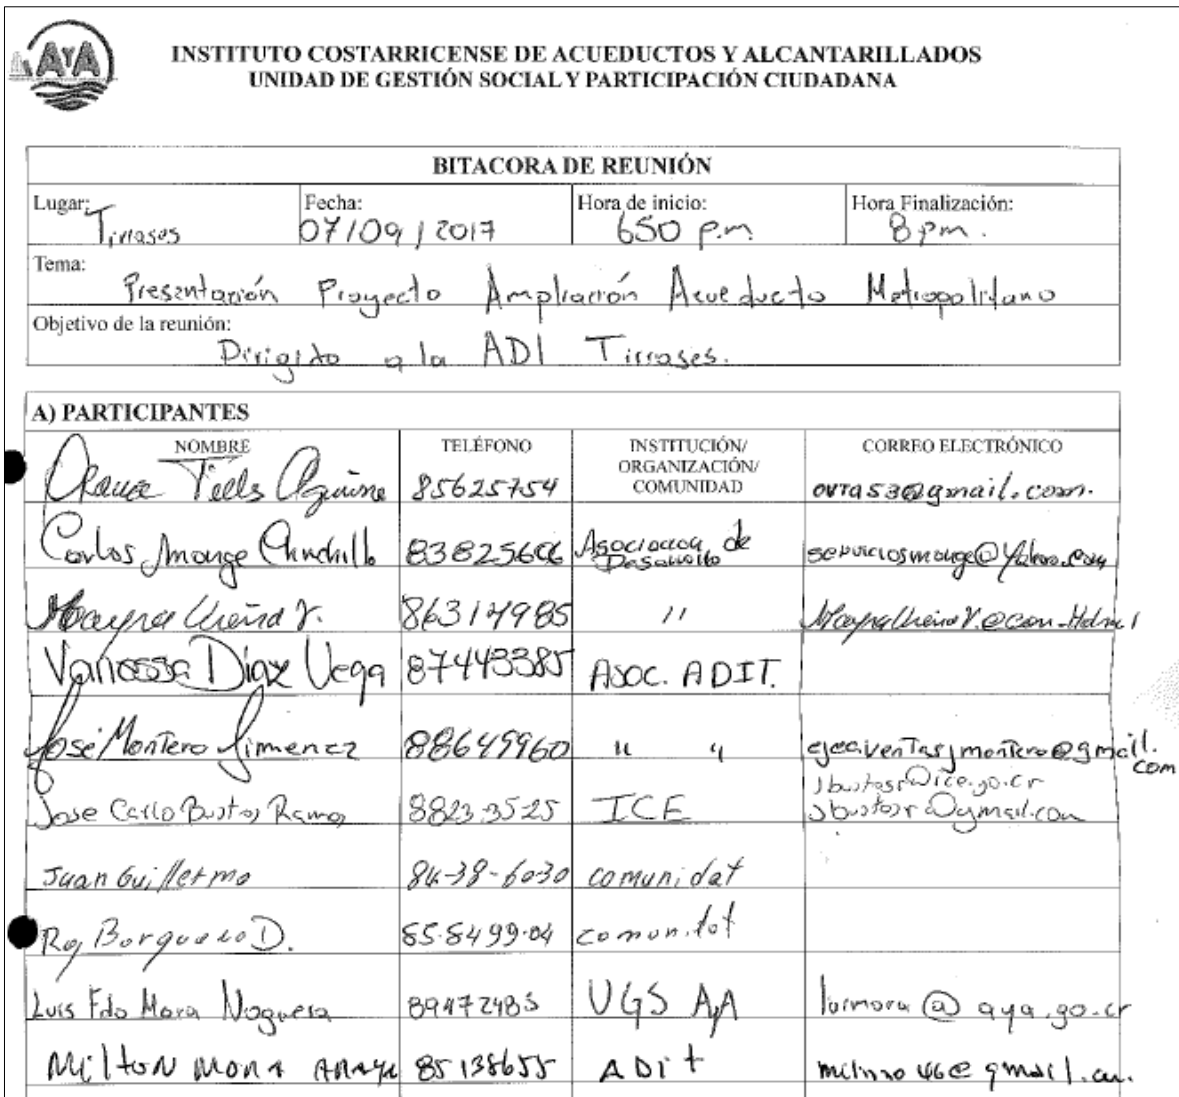 AYA
INSTITUTO COSTARRICENSE DE ACUEDUCTOS Y ALCANTARILLADOS
UNIDAD DE GESTIÓN SOCIAL Y PARTICIPACIÓN CIUDADANA
BITACORA DE REUNIÓN
Lugar: Tirrases Fecha: 07/09/2017 Hora de inicio: 650 p.m. Hora Finalización: 8 pm.
Tema: Presentación Proyecto Ampliación Acueducto Metropolitano
Objetivo de la reunión: Dirigido a la ADI Tirrases.
A) PARTICIPANTES
NOMBRE TELÉFONO INSTITUCIÓN/ ORGANIZACIÓN/ COMUNIDAD CORREO ELECTRÓNICO
85625754 ovta53@gmail.com.
Carlos Monge Chinchilla Asociacion de Desarrollo serviciosmonge@Yahoo.com
Mayra Ureña V. 86314985 "
Vanessa Diaz Vega 87443385 ASOC. ADIT.
José Montero Jimenez 88649960 " " ejecaventasjmontero@gmail.com
Jose Carlo Bustos Ramos 8823-3525 ICE jbustosr@ice.go.cr
jbustosr@gmail.com
Juan Guillermo 84-38-6030 comunidat
D. 85-8499-04 comunitat
Luis Fdo Mora Noguera 89472485 UGS AyA luimora@aya.go.cr
Milton Mora Araya 85138655 ADit